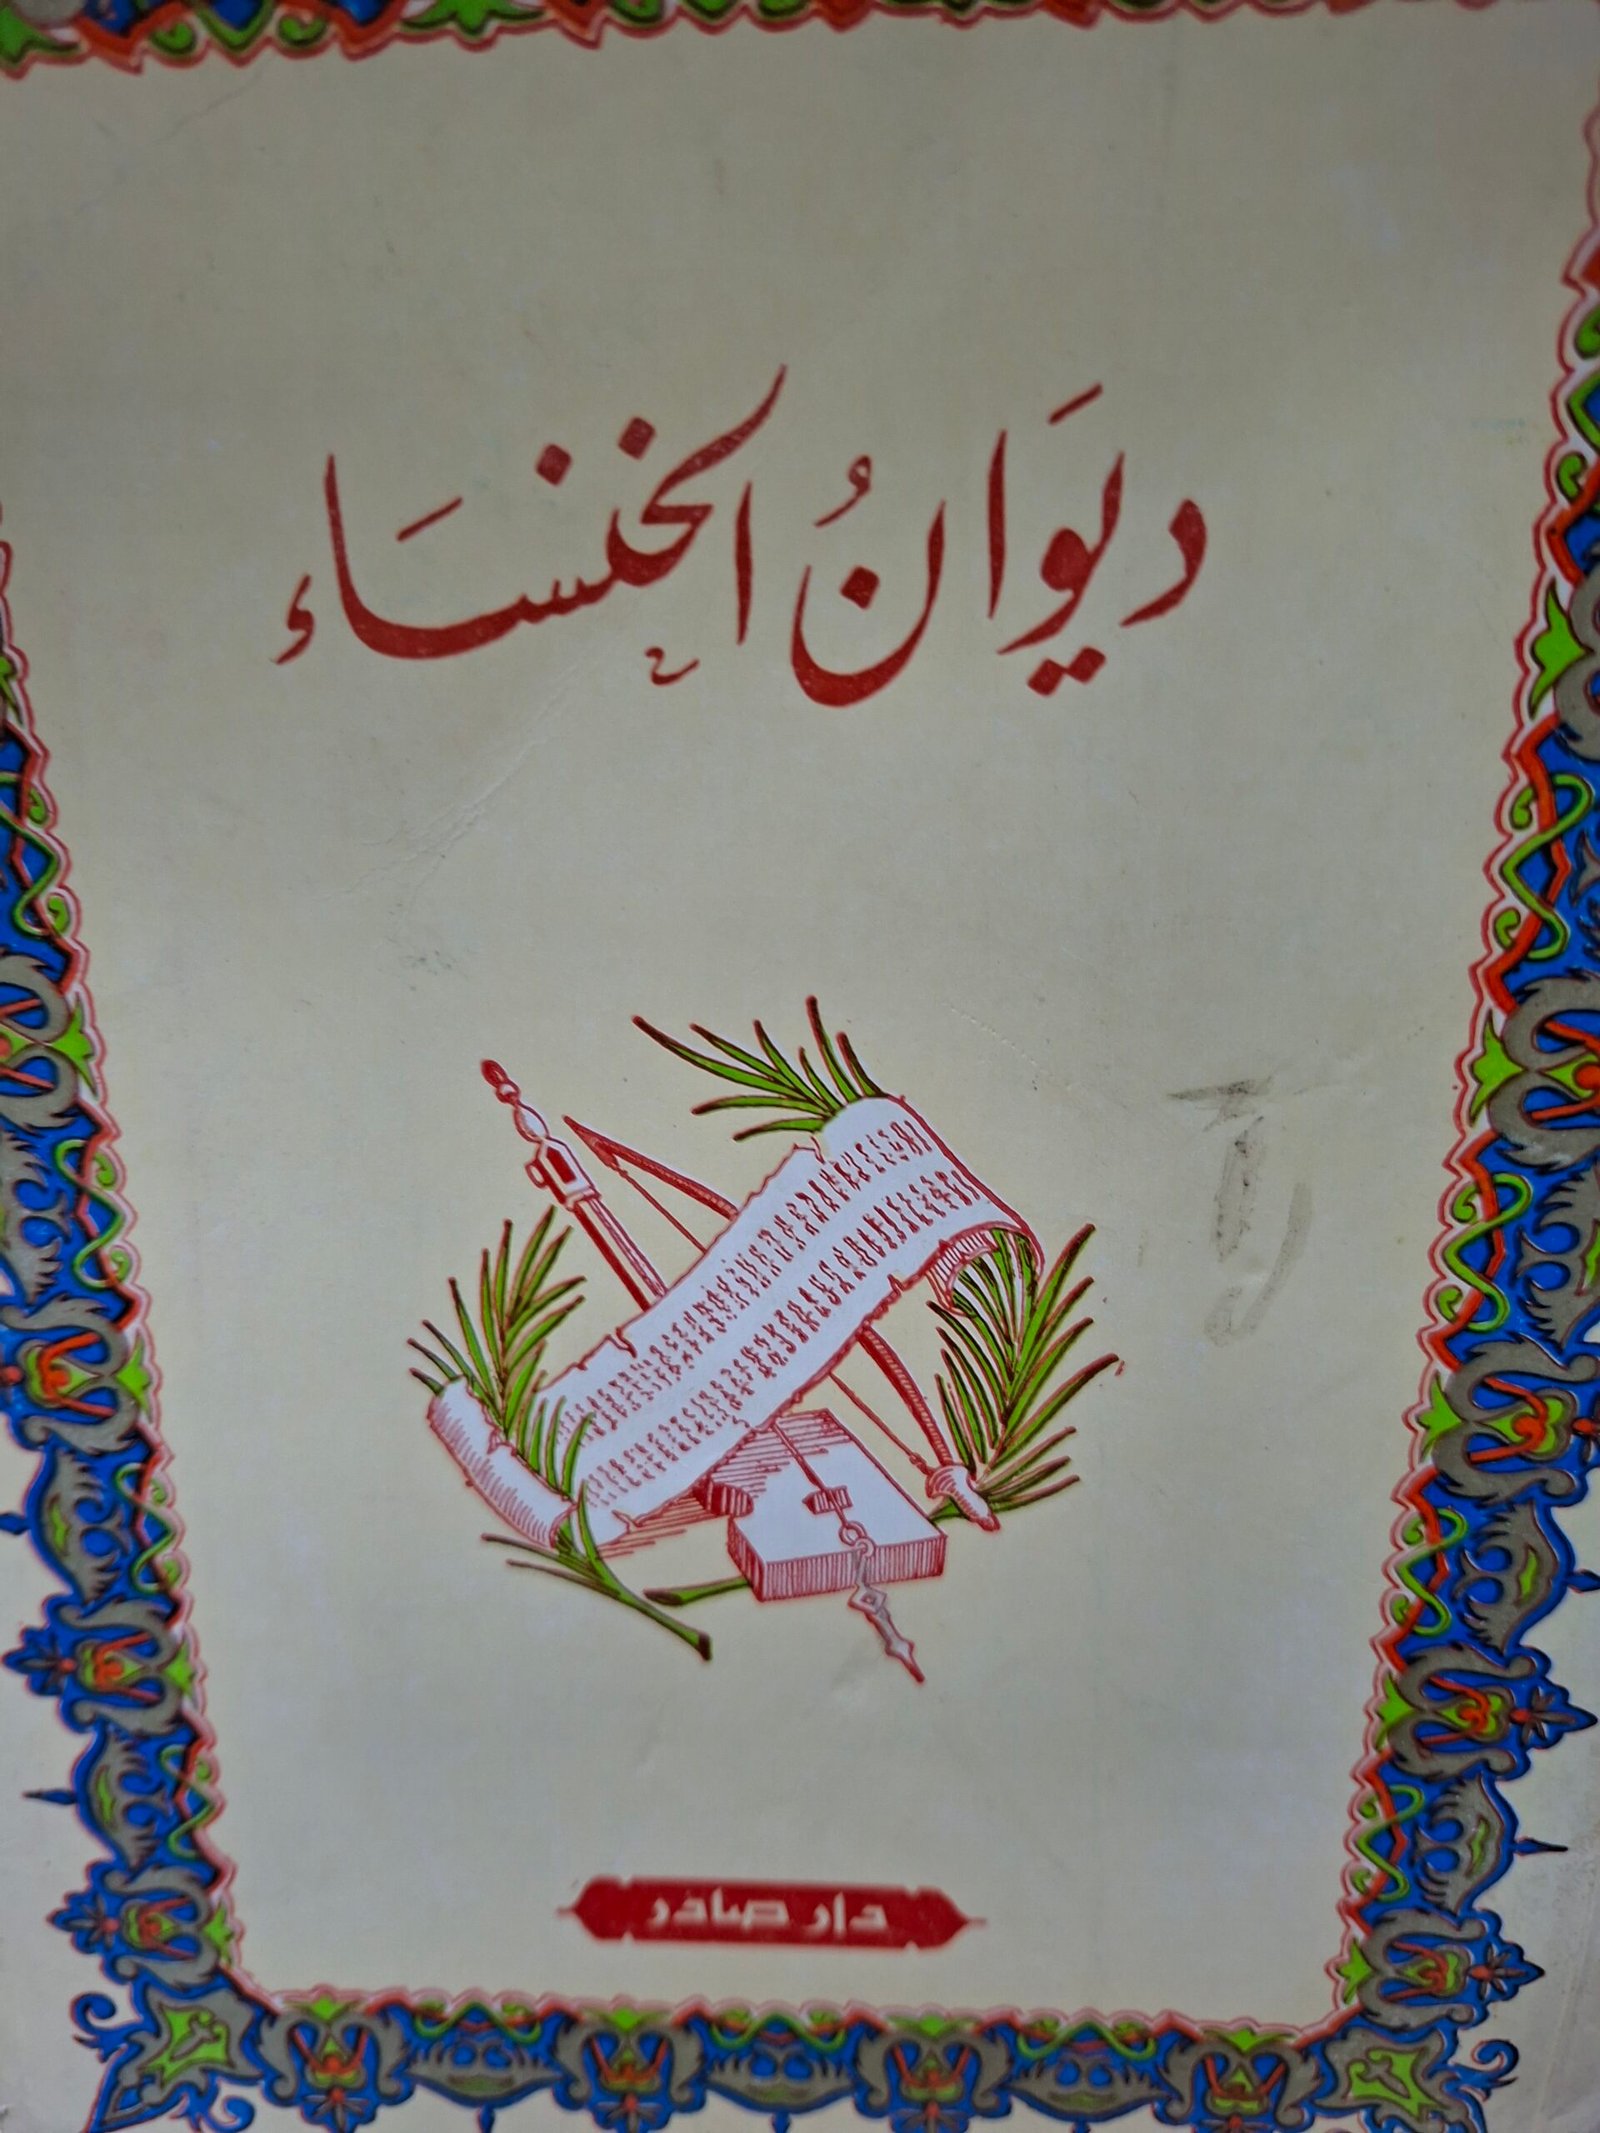 ديوَانُ الخنسَاء
دار صادر